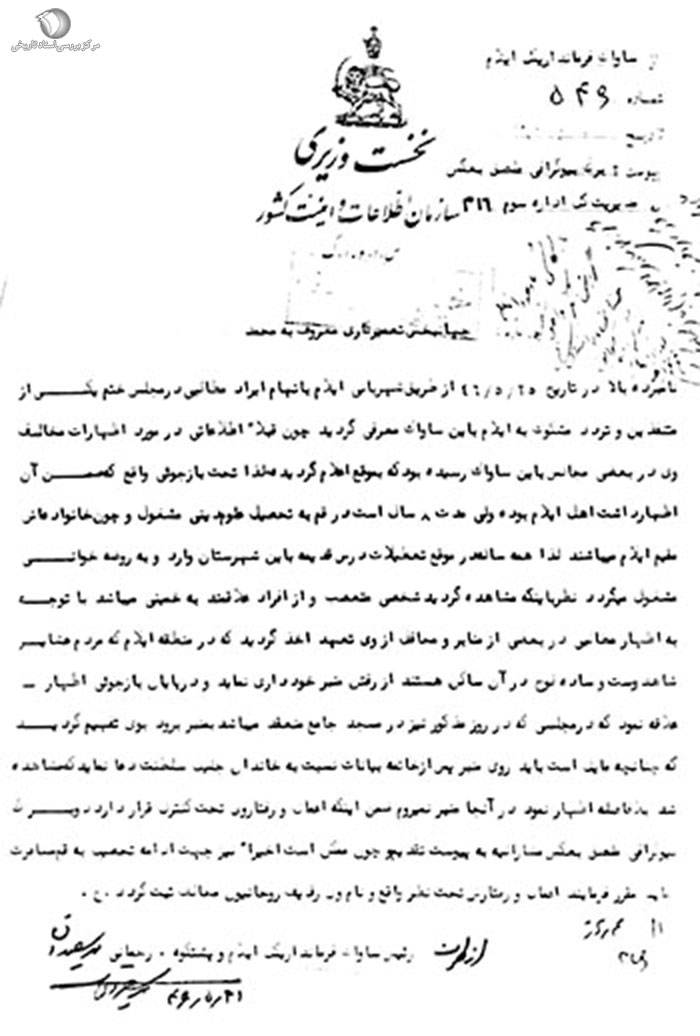 مرکز بررسی اسناد تاریخی
از ساواک فرمانداریکل ایلام
شماره ۵۴۹
تاریخ
پیوست : بیوگرافی ملصق بعکس
مدیریت کل اداره سوم ۳۱۶
نخست وزیری
سازمان اطلاعات و امنیت کشور
س.ا.و.ا.ک
جهانبخش تعمیرکاری معروف به محمد
نامبرده بالا در تاریخ ۴۶/۵/۲۵ از طریق شهربانی ایلام باتهام ایراد مطالبی در مجلس ختم یکی از
متنفذین و تردد مشکوک به ایلام باین ساواک معرفی گردید چون قبلاً اطلاعاتی در مورد اظهارات مخالف
وی در بعضی مجالس باین ساواک رسیده بود که بموقع اعلام گردیده لذا تحت بازجوئی واقع که ضمن آن
اظهار داشت اهل ایلام بوده ولی مدت ۸ سال است در قم به تحصیل علوم دینی مشغول و چون خانواده اش
مقیم ایلام میباشند لذا همه ساله در موقع تعطیلات درس قدیمه باین شهرستان وارد و به روضه خوانی
مشغول میگردد نظرباینکه مشاهده گردید شخصی متعصب و از افراد علاقمند به خمینی میباشد با توجه
به اظهار معاصی در بعضی از منابر و محافل از وی تعهد اخذ گردید که در منطقه ایلام که مردم عشایر
شاهدوست و ساده لوح در آن ساکن هستند از رفتن منبر خودداری نماید و درپایان بازجوئی اظهار -
علاقه نمود که در مجلسی که در روز مذکور نیز در مسجد جامع منعقد میباشد بمنبر برود بوی تفهیم گردید
که چنانچه مایل است باید روی منبر پس از خاتمه بیانات نسبت به خاندان جلیل سلطنت دعا نماید که مشاهده
شد بلافاصله اظهار نمود در آنجا منبر نمیروم ضمن اینکه اعمال و رفتارش تحت کنترل قرار دارد دو برگ
بیوگرافی ملصق بعکس مشارالیه به پیوست تقدیم چون ممکن است اخیراً نیز جهت ادامه تحصیل به قم مسافرت
نماید مقرر فرمایند اعمال و رفتارش تحت نظر واقع و نام وی ردیف روحانیون معاند ثبت گردد . ح .
رئیس ساواک فرمانداریکل ایلام و پشتکوه . رحمانی
از طرف
۴۶/۵/۳۱